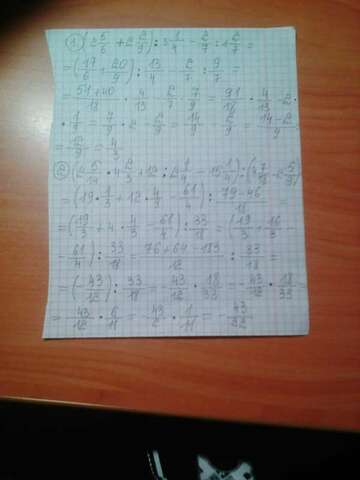 1) (2 5/6 + 2 2/9) : 3 1/4 - 2/7 : 1 2/7 =
= (17/6 + 20/9) : 13/4 - 2/7 : 9/7 =
= (51+40)/18 · 4/13 - 2/7 · 7/9 = 91/18 · 4/13 - 2 ·
· 1/9 = 7/9 · 2 - 2/9 = 14/9 - 2/9 = (14-2)/9 =
= 12/9 = 4/3
= (19 · 1/3 + 12 · 4/9 - 61/4) : (79-46)/18 =
= (19/3 + 4 · 4/3 - 61/4) : 33/18 = (19/3 + 16/3 -
- 61/4) : 33/18 = (76+64-183)/12 : 33/18 =
= (-43/12) : 33/18 = -43/12 · 18/33 = -43/12 · 18/33 =
= -43/12 · 6/11 = -43/2 · 1/11 = -43/22